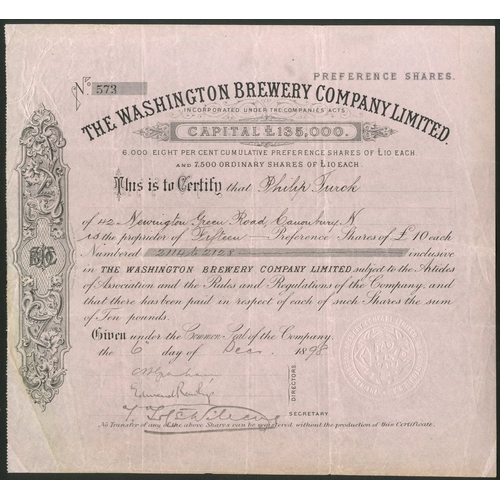 PREFERENCE SHARES.
No. 573
THE WASHINGTON BREWERY COMPANY LIMITED.
INCORPORATED UNDER THE COMPANIES ACTS.
CAPITAL £135,000.
6,000 EIGHT PER CENT CUMULATIVE PREFERENCE SHARES OF £10 EACH.
AND 7,500 ORDINARY SHARES OF £10 EACH.
This is to Certify that Philip Turck
of 42 Newington Green Road, Canonbury, N
is the proprietor of Fifteen Preference Shares of £10 each
Numbered 2114 to 2128 inclusive
in THE WASHINGTON BREWERY COMPANY LIMITED, subject to the Articles
of Association and the Rules and Regulations of the Company, and
that there has been paid in respect of each of such Shares the sum
of Ten pounds.
Given under the Common Seal of the Company.
the 6 day of Dec. 1898
DIRECTORS
SECRETARY
No Transfer of any of the above Shares can be registered without the production of this Certificate.